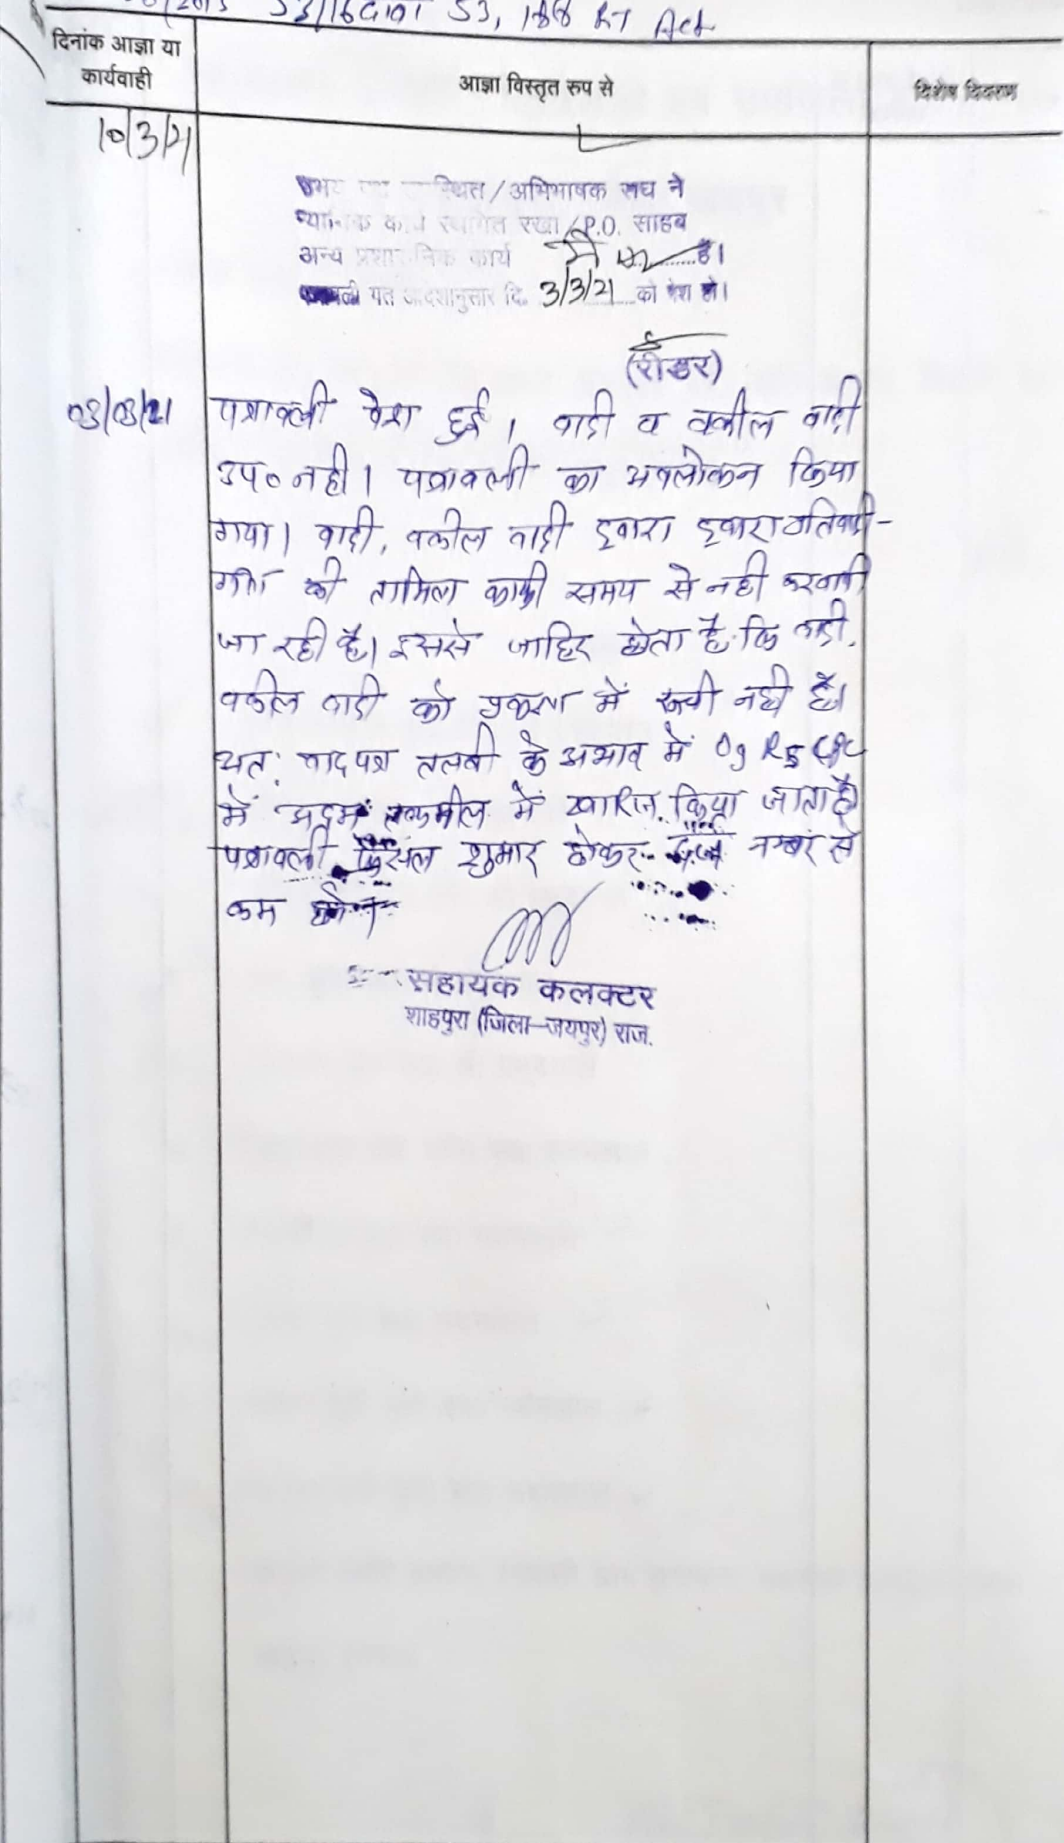 दावा 53, 188 RT Act
दिनांक आज्ञा या
कार्यवाही
आज्ञा विस्तृत रुप से
विशेष विवरण
10/3/21
उभय पक्ष उपस्थित/अभिभाषक संघ ने
न्यायिक कार्य स्थगित रखा/P.O. साहब
अन्य प्रशासनिक कार्य में है।
पत्रावली गत आदेशानुसार दि. 3/3/21 को पेश हो।
(रीडर)
03/03/21
पत्रावली पेश हुई। वादी व वकील वादी
उप० नही। पत्रावली का अवलोकन किया
गया। वादी, वकील वादी द्वारा द्वारा प्रतिवादी-
गण की तामिल काफी समय से नही करवायी
जा रही है। इससे जाहिर होता है कि वादी,
वकील वादी को मुकदमा में रूची नही है।
अत: वादपत्र तलबी के अभाव में O9 R5 CPC
में अदम तकमील में खारिज किया जाता है
पत्रावली फैसल शुमार होकर दर्ज नम्बर से
कम होवे।
सहायक कलक्टर
शाहपुरा (जिला-जयपुर) राज.